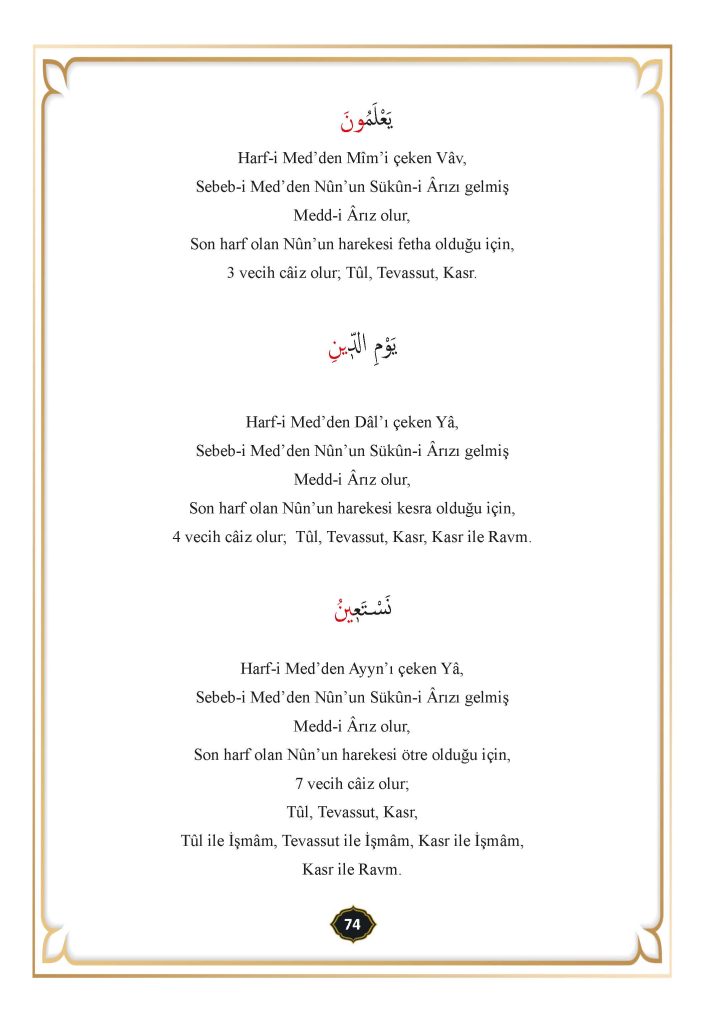 يَعْلَمُونَ
Harf-i Med’den Mîm’i çeken Vâv,
Sebeb-i Med’den Nûn’un Sükûn-i Ârızı gelmiş
Medd-i Ârız olur,
Son harf olan Nûn’un harekesi fetha olduğu için,
3 vecih câiz olur; Tûl, Tevassut, Kasr.
يَوْمِ الدّ۪ينِ
Harf-i Med’den Dâl’ı çeken Yâ,
Sebeb-i Med’den Nûn’un Sükûn-i Ârızı gelmiş
Medd-i Ârız olur,
Son harf olan Nûn’un harekesi kesra olduğu için,
4 vecih câiz olur;  Tûl, Tevassut, Kasr, Kasr ile Ravm.
نَسْتَع۪ينُ
Harf-i Med’den Ayyn’ı çeken Yâ,
Sebeb-i Med’den Nûn’un Sükûn-i Ârızı gelmiş
Medd-i Ârız olur,
Son harf olan Nûn’un harekesi ötre olduğu için,
7 vecih câiz olur;
Tûl, Tevassut, Kasr,
Tûl ile İşmâm, Tevassut ile İşmâm, Kasr ile İşmâm,
Kasr ile Ravm.
74